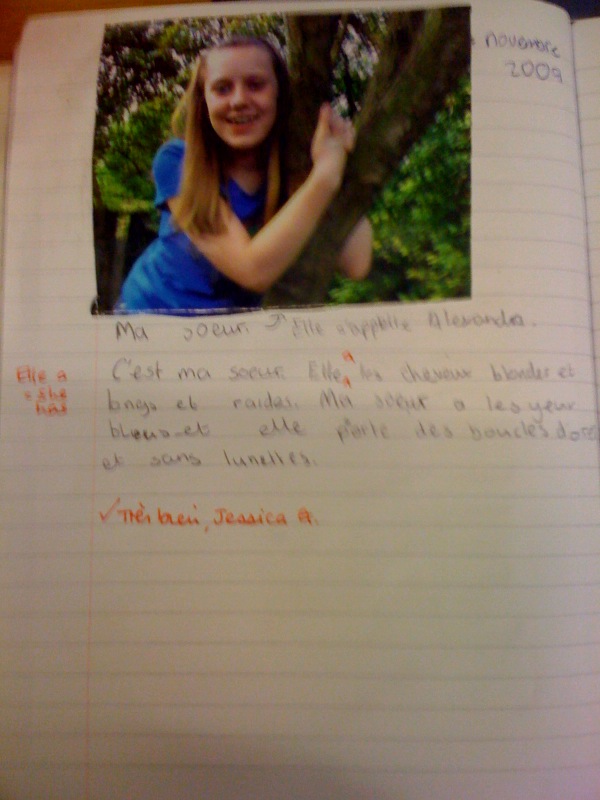 novembre
2009
Ma soeur. Elle s'appelle Alexandra.
C'est ma soeur. Elle a les cheveux blondes et
longs et raides. Ma soeur a les yeux
bleus et elle porte des boucles d'ore
et sans lunettes.
Elle a
= she
has
✓ Très bien, Jessica